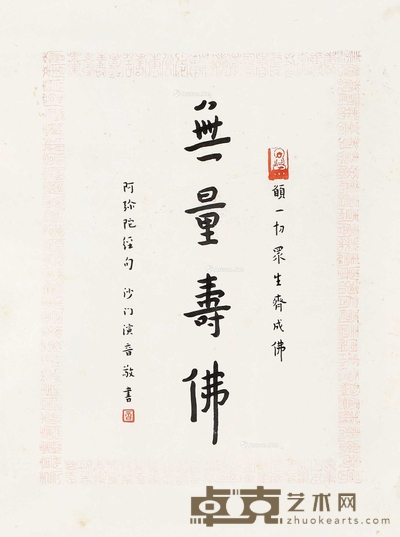 願一切眾生齊成佛
無量壽佛
阿弥陀經句 沙门演音敬書
卓克艺术网
zhuokearts.com